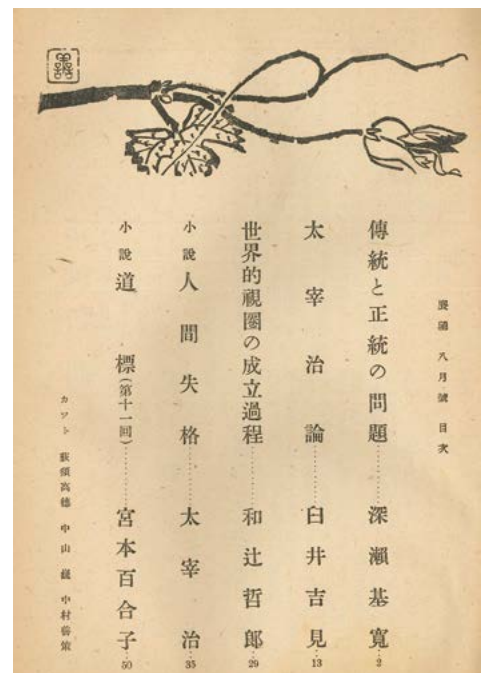 展望 八月號 目次
傳統と正統の問題………深瀬基寬…2
太宰治論………臼井吉見…13
世界的視圏の成立過程………和辻哲郎…29
小説 人間失格………太宰治…35
小説 道標(第十一回)………宮本百合子…50
カツト 荻須高德 中山 巍 中村善策